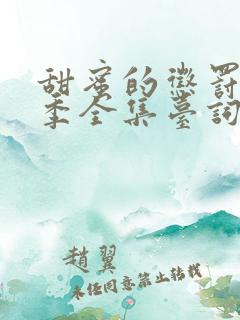 甜蜜的懲罰
季全集臺詞
趙翼
未經同意禁止轉載